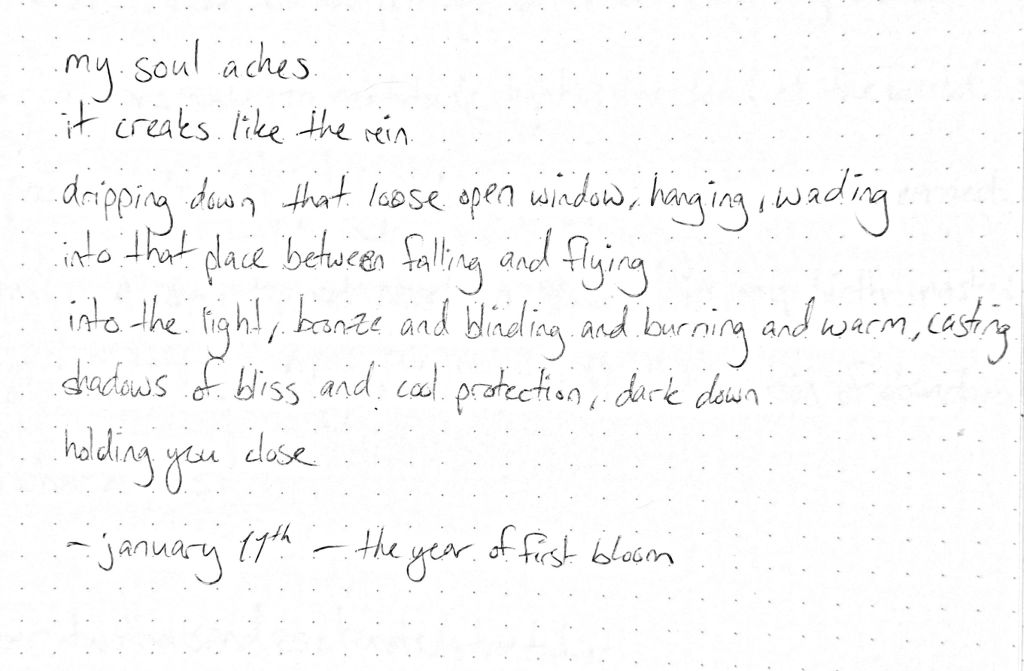 my soul aches
it creaks like the rein
dripping down that loose open window, hanging, wading
into that place between falling and flying
into the light, bronze and blinding and burning and warm, casting
shadows of bliss and cool protection, dark down
holding you close
- january 11th - the year of first bloom